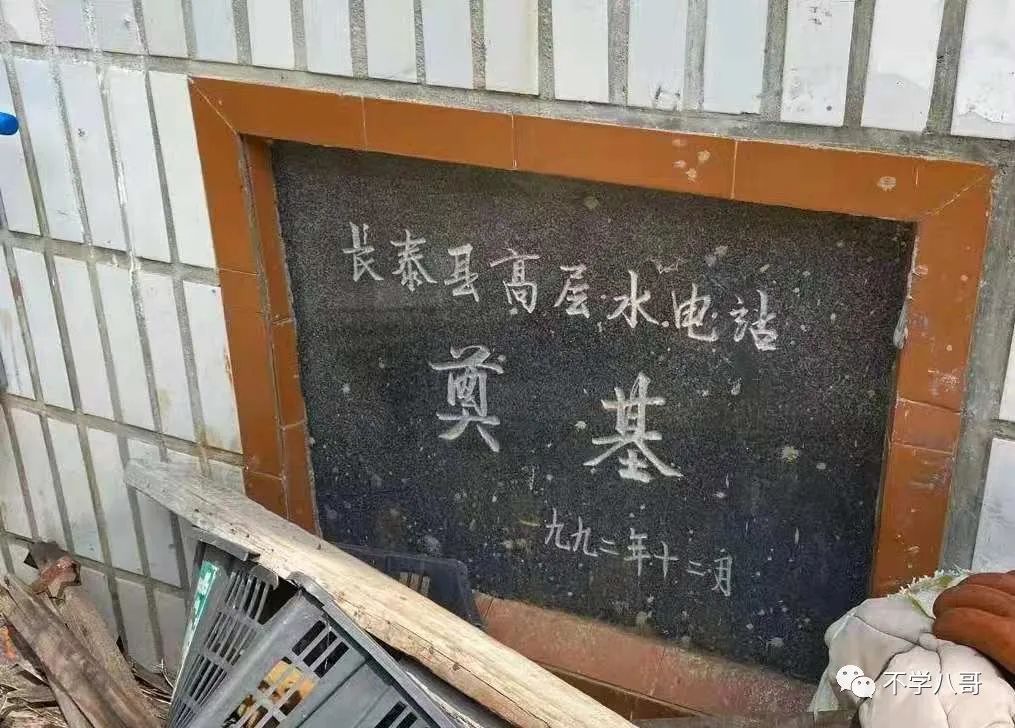 长泰县高层水电站
奠基
九九二年十二月
不学八哥